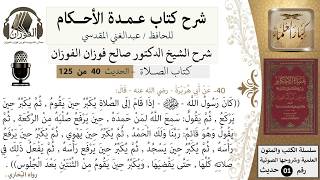 شرح كتاب عمدة الأحكام
للحافظ / عبدالغني المقدسي
شرح الشيخ الدكتور صالح فوزان الفوزان
كتاب الصلاة - الحديث 40 من 125
الفوزان
سلسلة الكتب والمتون
العلمية وشروحها الصوتية
رقم 01 حديث
40- عن أبي هريرة - رضي الله عنه - قال:
((كَانَ رَسُولُ اللَّهِ - ﷺ - إذَا قَامَ إلَى الصَّلَاةِ يُكَبِّرُ حِينَ يَقُومُ , ثُمَّ يُكَبِّرُ حِينَ
يَرْكَعُ , ثُمَّ يَقُولُ: سَمِعَ اللَّهُ لِمَنْ حَمِدَهُ , حِينَ يَرْفَعُ صُلْبَهُ مِنَ الرَّكْعَةِ , ثُمَّ
يَقُولُ وَهُوَ قَائِمٌ: رَبَّنَا وَلَكَ الْحَمْدُ , ثُمَّ يُكَبِّرُ حِينَ يَهْوِي , ثُمَّ يُكَبِّرُ حِينَ
يَرْفَعُ رَأْسَهُ , ثُمَّ يُكَبِّرُ حِينَ يَسْجُدُ , ثُمَّ يُكَبِّرُ حِينَ يَرْفَعُ رَأْسَهُ , ثُمَّ يَفْعَلُ ذَلِكَ فِي
صَلَاتِهِ كُلِّهَا , حَتَّى يَقْضِيَهَا , وَيُكَبِّرُ حِينَ يَقُومُ مِنَ الثِّنْتَيْنِ بَعْدَ الْجُلُوسِ)) .
رواه البخاري